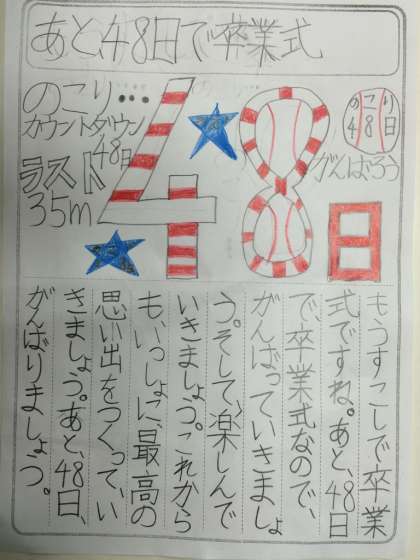 あと、48日で卒業式
のこり・・・
カウントダウン
48日
ラスト
35m
48日
のこり
48日
がんばろう
もうすこしで卒業
式ですね。あと、48日
で、卒業式なので、
がんばっていきましょ
う。そして、楽しんで
いきましょう。これから
も、いっしょに、最高の
思い出をつくって、い
きましょう。あと、48日、
がんばりましょう。